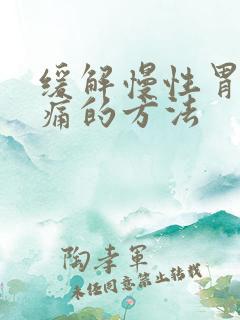 缓解慢性胃
痛的方法
陶孝军
未经同意禁止转载